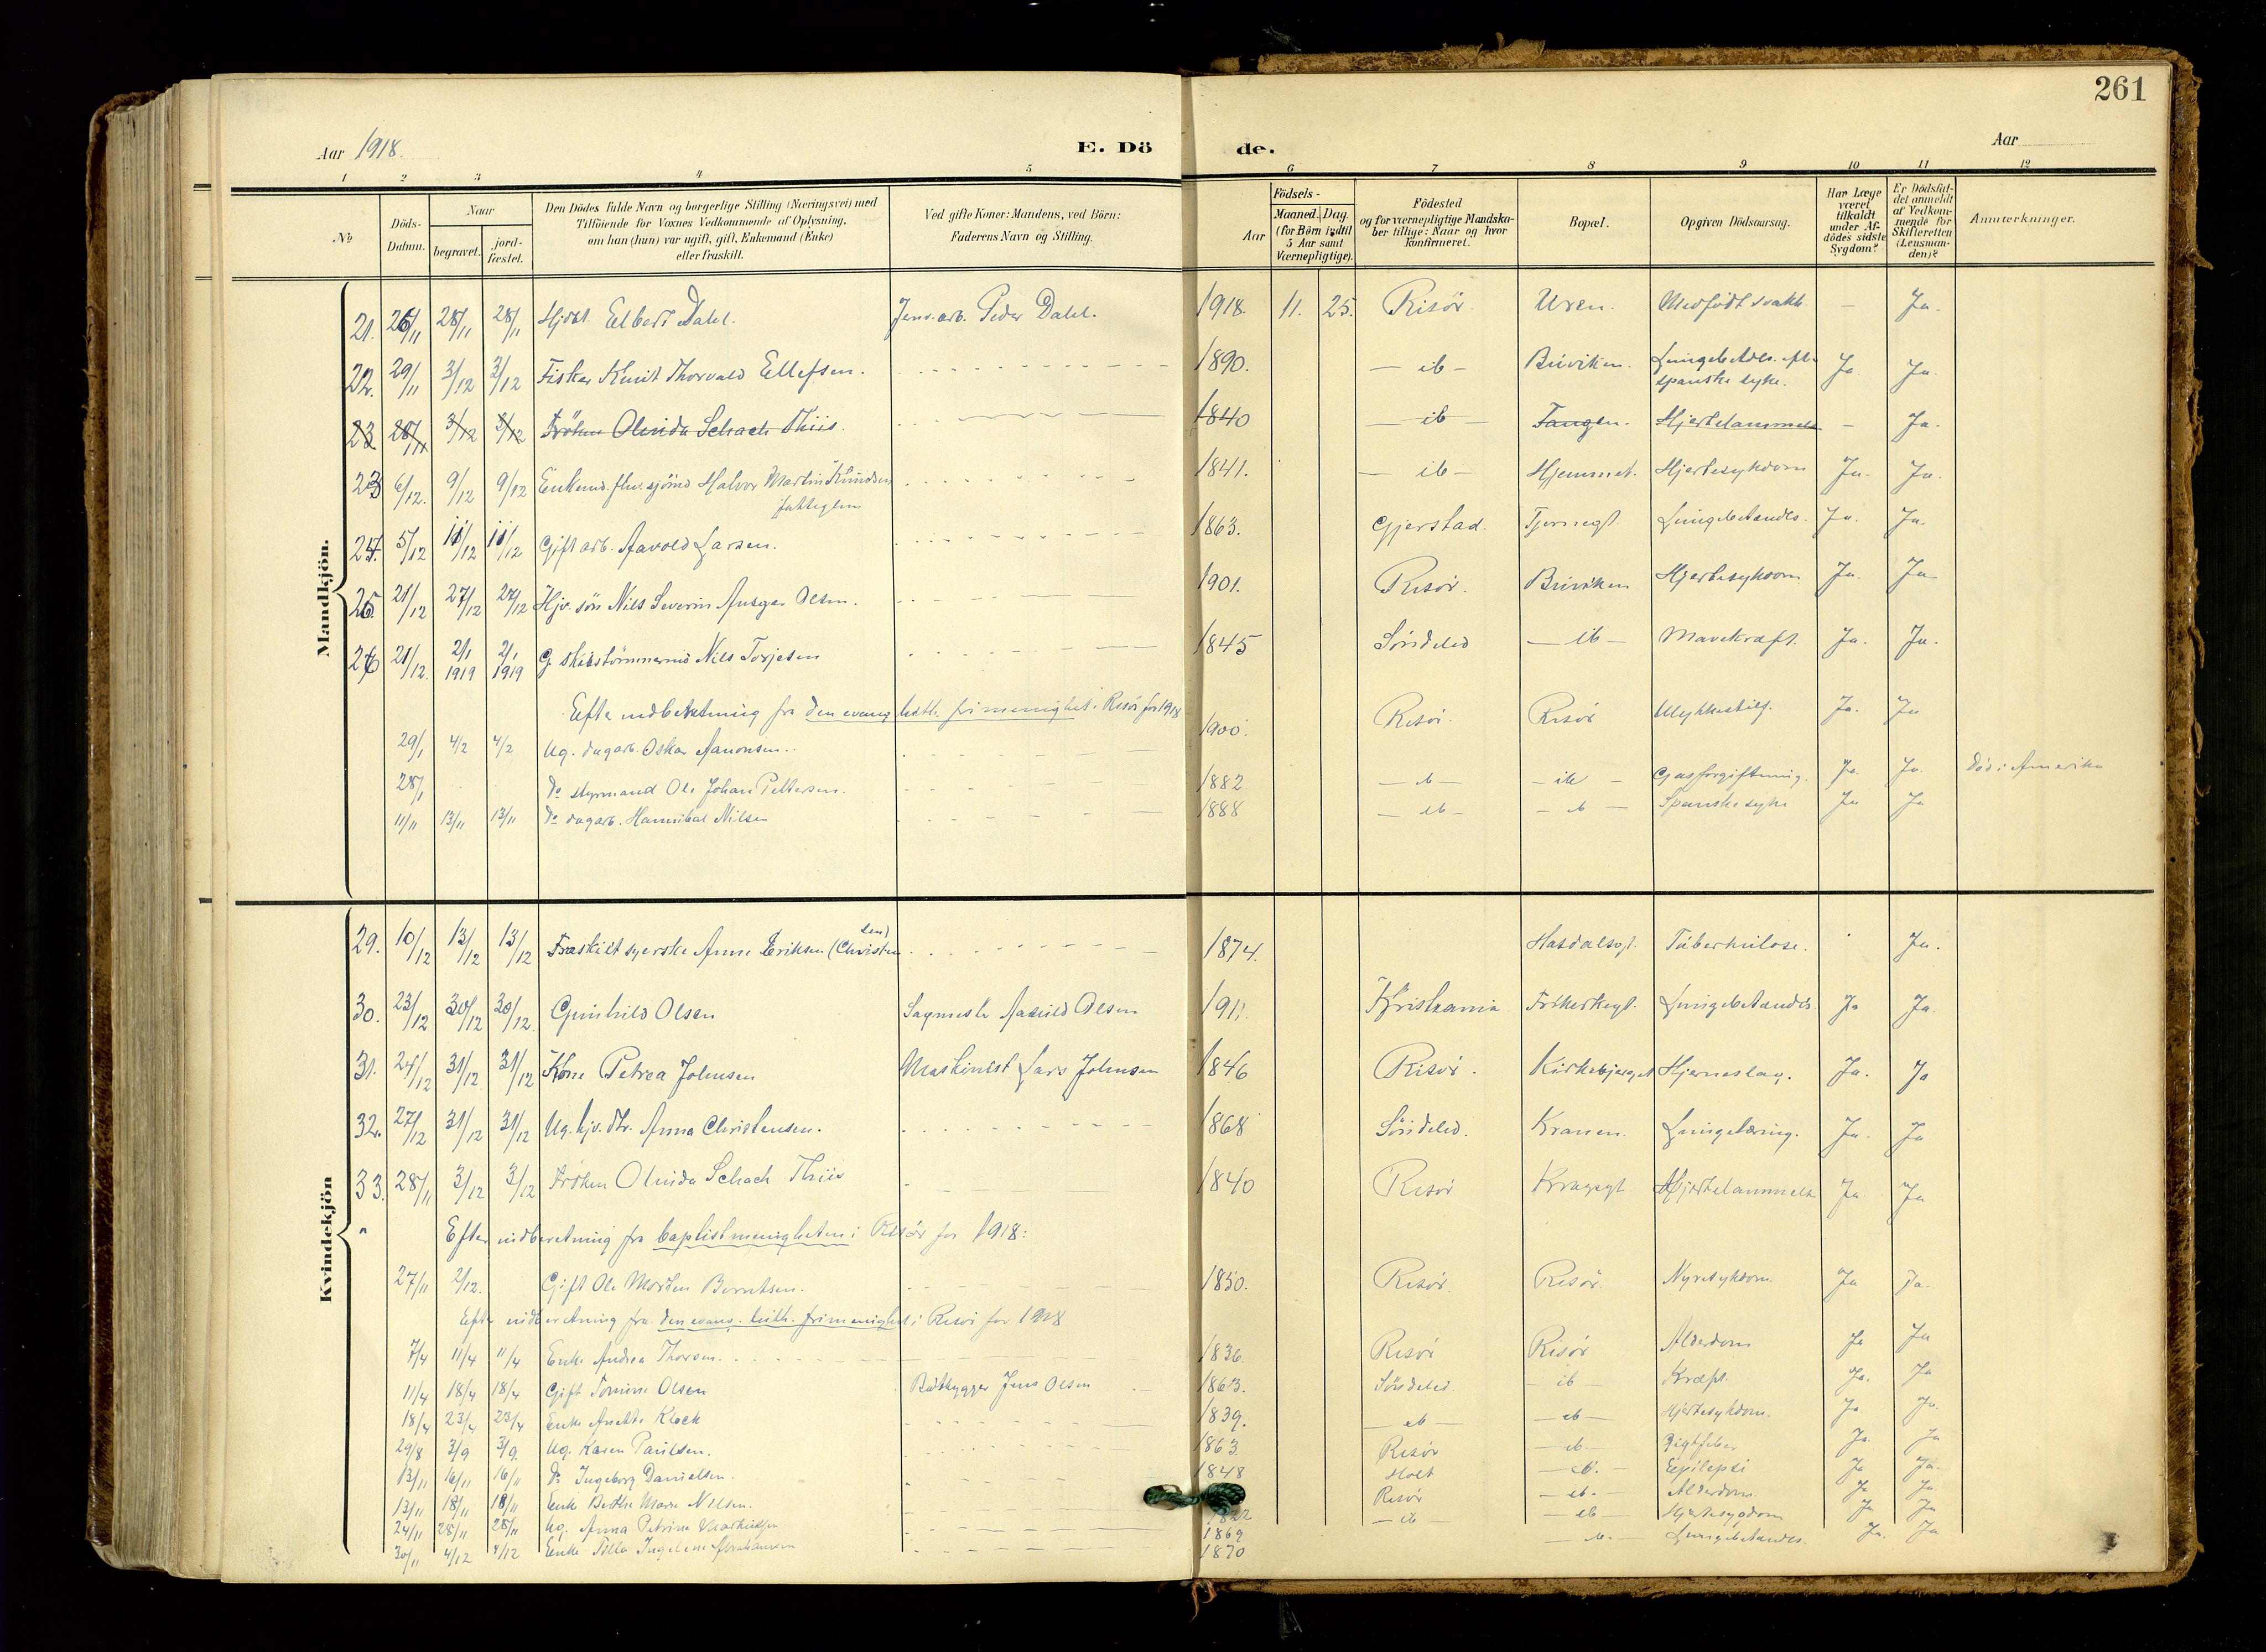 261
Aar 1918.
E. Döde.
Aar
1 2 3 4 5 6 7 8 9 10 11 12
No
Döds-Datum.
Naar
begravet.
jord-fæstet.
Den Dödes fulde Navn og borgerlige Stilling (Næringsvei) med
Tilföiende for Voxnes Vedkommende af Oplysning,
om han (hun) var ugift, gift, Enkemand (Enke)
eller fraskilt.
Ved gifte Koner: Mandens, ved Börn:
Faderens Navn og Stilling.
Födsels-
Aar
Maaned. Dag.
(for Börn indtil
5 Aar samt
Værnepligtige).
Födested
og for værnepligtige Mandska-
ber tillige: Naar og hvor
konfirmeret.
Bopæl.
Opgiven Dödsaarsag.
Har Læge
været
tilkaldt
under Af-
dödes sidste
Sygdom?
Er Dödsfal-
det anmeldt
af Vedkom-
mende for
Skifteretten
(Lensman-
den)?
Anmerkninger.
Mandkjön.
21. 26/11 28/11 28/11 Elbert Dahl. Peder Dahl. 1918. 11. 25. Risör. Uren. Medfödt svakh. — Ja.
22. 29/11 3/12 3/12 Fisker Knut Thorvald Ellefsen. 1890. — ib — Buviken. Lungebetænd. eft.
spanske syke. Ja Ja.
23 28/11 3/12 3/12 Fröken Olinida Schach Thiis. 1840 — ib — Tangen. Hjertelammelse — Ja.
23 6/12. 9/12 9/12 Enkemd. Halvor Martin Knudsen 1841. — ib — Hjemmet. Hjertesykdom Ja. Ja.
24. 5/12 11/12 11/12 Gift arb. Aavold Larsen. 1863. Gjerstad. Tjernegt. Lungebetændls. Ja. Ja.
25 21/12 27/12 27/12 Hjv. sön Nils Severin Ansgar Olsen. 1901. Risör. Buviken Hjertesykdom Ja. Ja
26 21/12. 2/1 1919 2/1 1919 G. skibstömmermd Nils Torjesen 1845 Söndeled — ib — Mavekræft. Ja. Ja.
Efter indberetning fra den evang. luth. frimenighet i Risör for 1918
29/1 4/2 4/2 Ug. dagarb. Oskar Aanonsen. 1900. Risör. Risör Ulykkestilf. Ja. Ja
28/1 Do styrmand Ole Johan Pettersen. 1882 — ib — — ib — Gasforgiftning. Ja. Ja. Död i Amerika
11/11 13/11 13/11 Do dagarb. Hannibal Nilsen 1888 — ib — — ib — Spanske syke Ja Ja
Kvindekjön
29. 10/12 13/12 13/12 Fraskilt syerske Anne Eriksen (Christen
sen) 1874. Hasdalsgt. Tuberkulose. Ja.
30. 23/12 30/12 30/12. Gunhild Olsen Sagmester Olsen 1911. Kristiania Lungebetændls. Ja Ja.
31. 24/12 31/12 31/12 Kone Petrea Johnsen Maskinist Lars Johnsen 1846 Risör. Kirkebjerget Hjerneslag. Ja. Ja
32. 27/12 31/12 31/12 Ug. hjv. dtr. Anna Christensen. 1868 Söndeled. Kranen. Lungetæring. Ja. Ja
33. 28/11 3/12 3/12 Fröken Olinida Schach Thiis 1840 Risör Kragsgt. Hjertelammelse Ja Ja
Efter indberetning fra baptistmenigheten i Risör for 1918:
27/11 2/12. Gift Ole Morten Berntsen. 1850. Risör. Risör. Nyresykdom. Ja Ja.
Efter indberetning fra den evang. luth. frimenighet i Risör for 1918
7/4 11/4 11/4 Enke Andrea Thorsen. 1836. Risör Risör Alderdom Ja Ja
11/4 18/4 18/4 Gift Tomine Olsen Baatbygger Jens Olsen 1863. Söndeled. — ib — Kræft. Ja. Ja
18/4 23/4 23/4 Enke Anette Klock 1839. — ib — — ib — Hjertesykdom. Ja Ja.
29/8 3/9 3/9. Ug. Karen Paulsen. 1863 Risör — ib — Gigtfeber Ja. Ja
13/11 16/11 16/11 Do Ingeborg Danielsen. 1848 Holt — ib. — Epilepsi Ja Ja.
13/11 18/11 18/11 Enke Berthe Marie Nilsen. 1822 Risör — ib. — Alderdom Ja Ja.
24/11 28/11 28/11 Ug. Anna Petrine 1869 — ib — — ib — Hjertesygdom Ja Ja
30/11 4/12 4/12 Enke Ingeline Abrahamsen 1870 — ib. — Lungebetændls. Ja. Ja